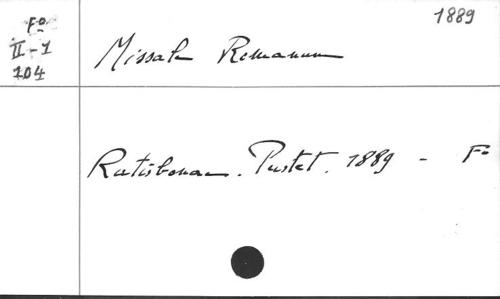 Fo
II-1
104
1889
Missale Romanum
Ratisbonae. Pustet. 1889 - Fo